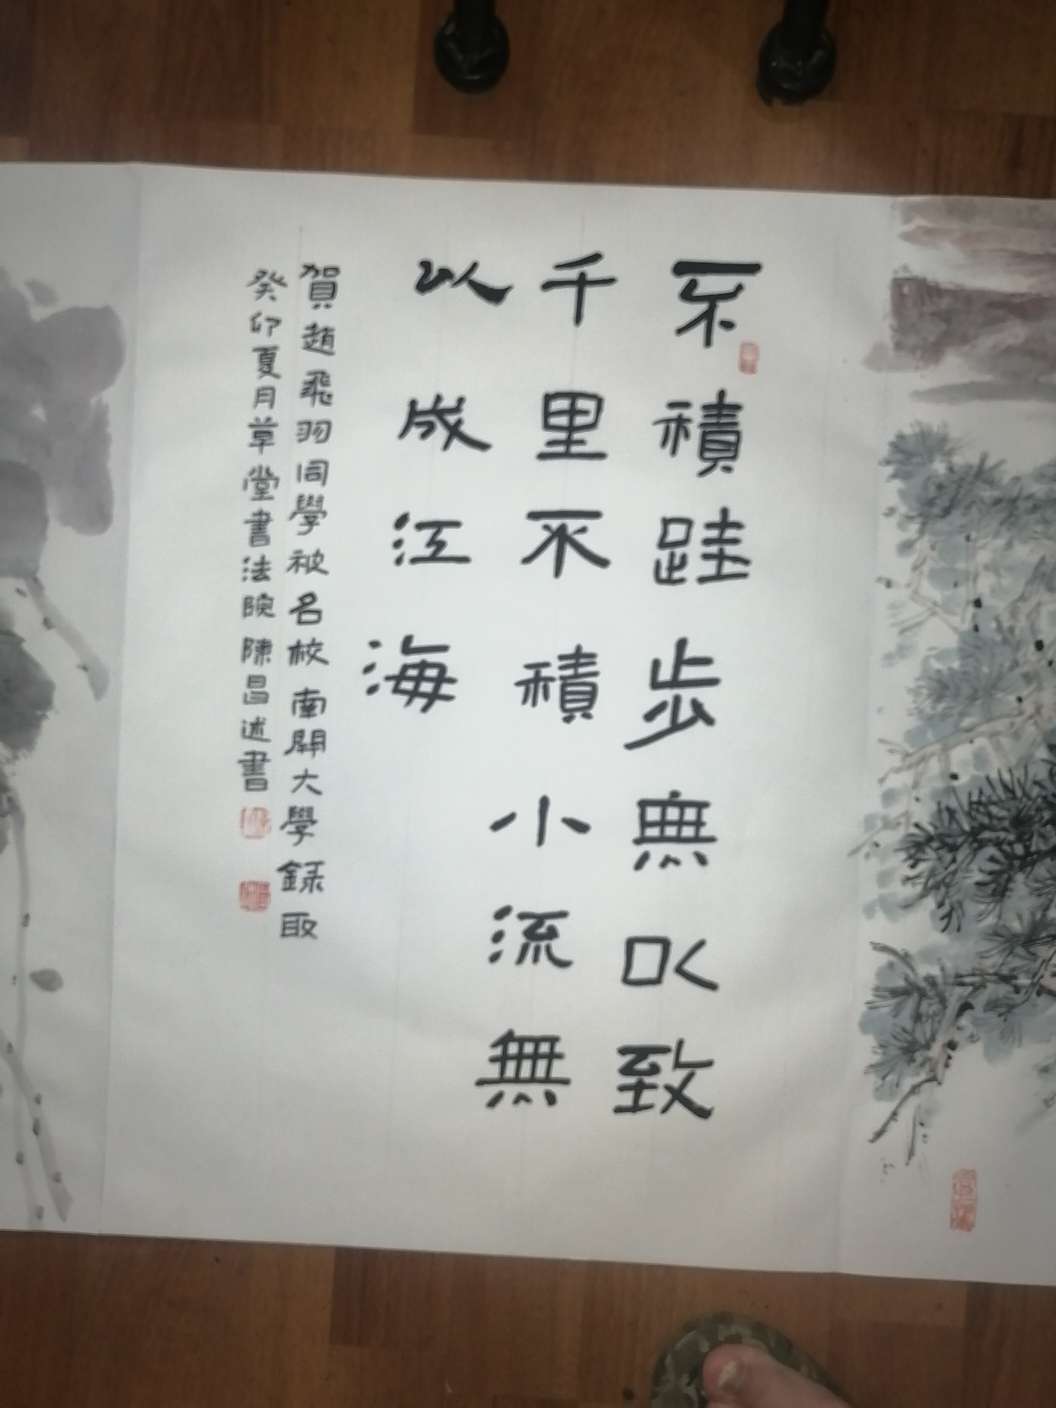 不積跬步無以致
千里不積小流無
以成江海
賀趙飛羽同學被名校南開大學録取
癸卯夏月草堂書法院陳昌述書